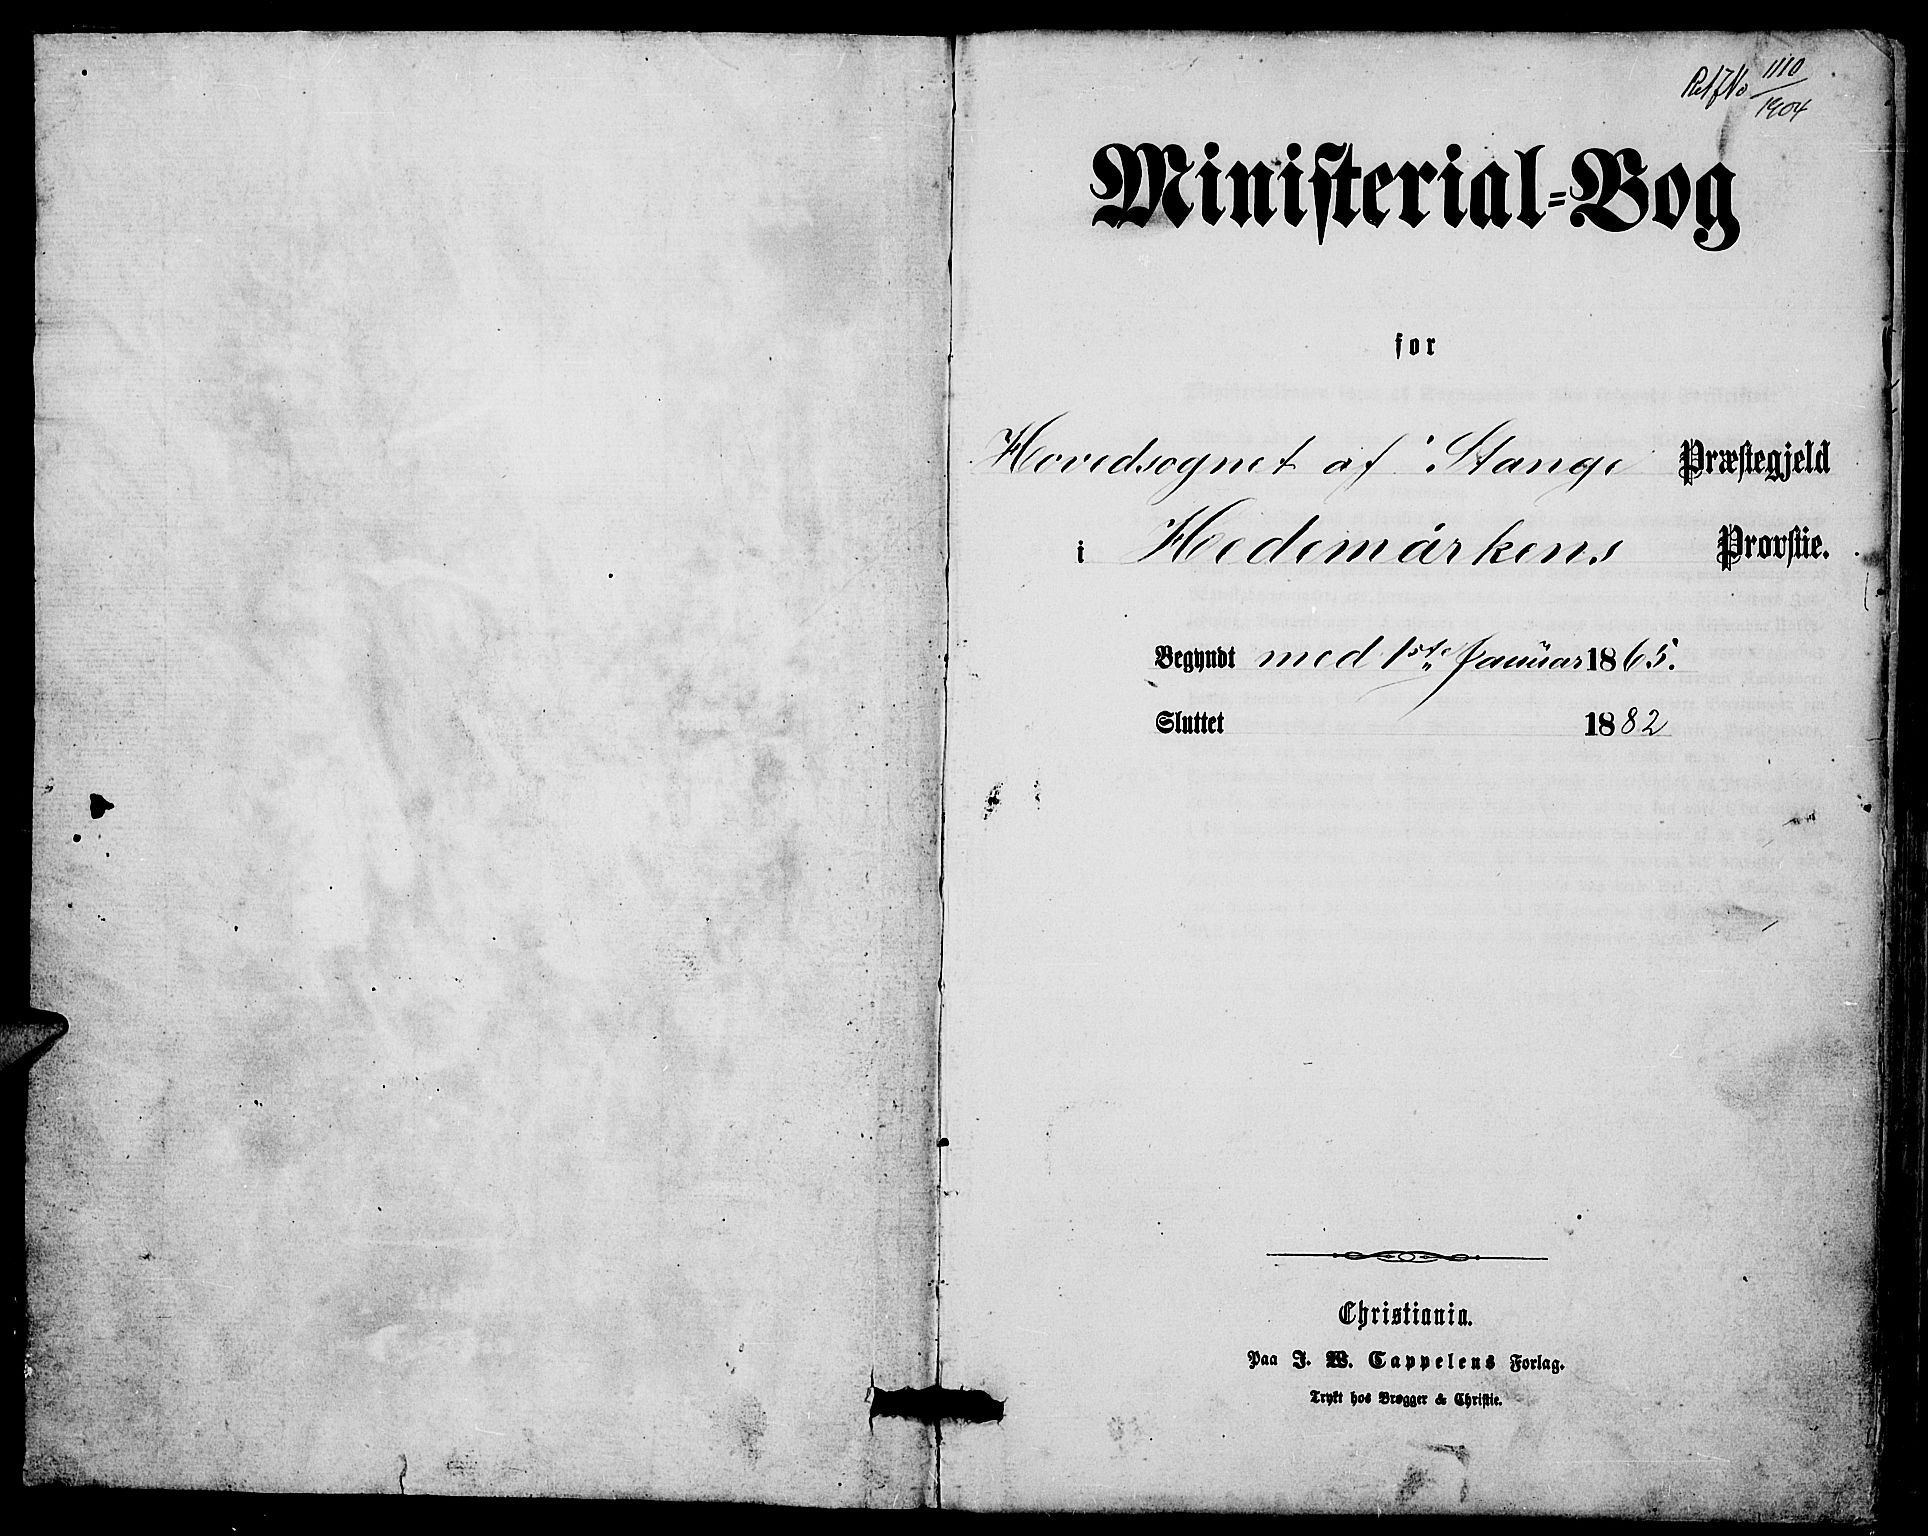 1110
1904
Ministerial-Bog
for
Hovedsognet af Stange Præstegjeld
i Hedemarkens Provstie.
Begyndt med 1ste Januar 1865.
Sluttet 1882
Christiania.
Paa J. W. Cappelens Forlag.
Trykt hos Brøgger & Christie.